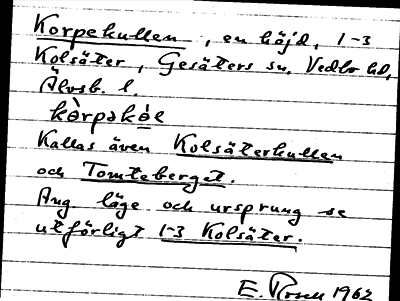 Korpekullen, en höjd, 1-3
Kolsäter, Gesäters sn, Vedbo hd,
Älvsb. l.
kò̀rpəkə̀l
Kallas även Kolsäterkullen
och Tomteberget.
Ang. läge och ursprung se
utförligt 1-3 Kolsäter.
E. Rosell 1962